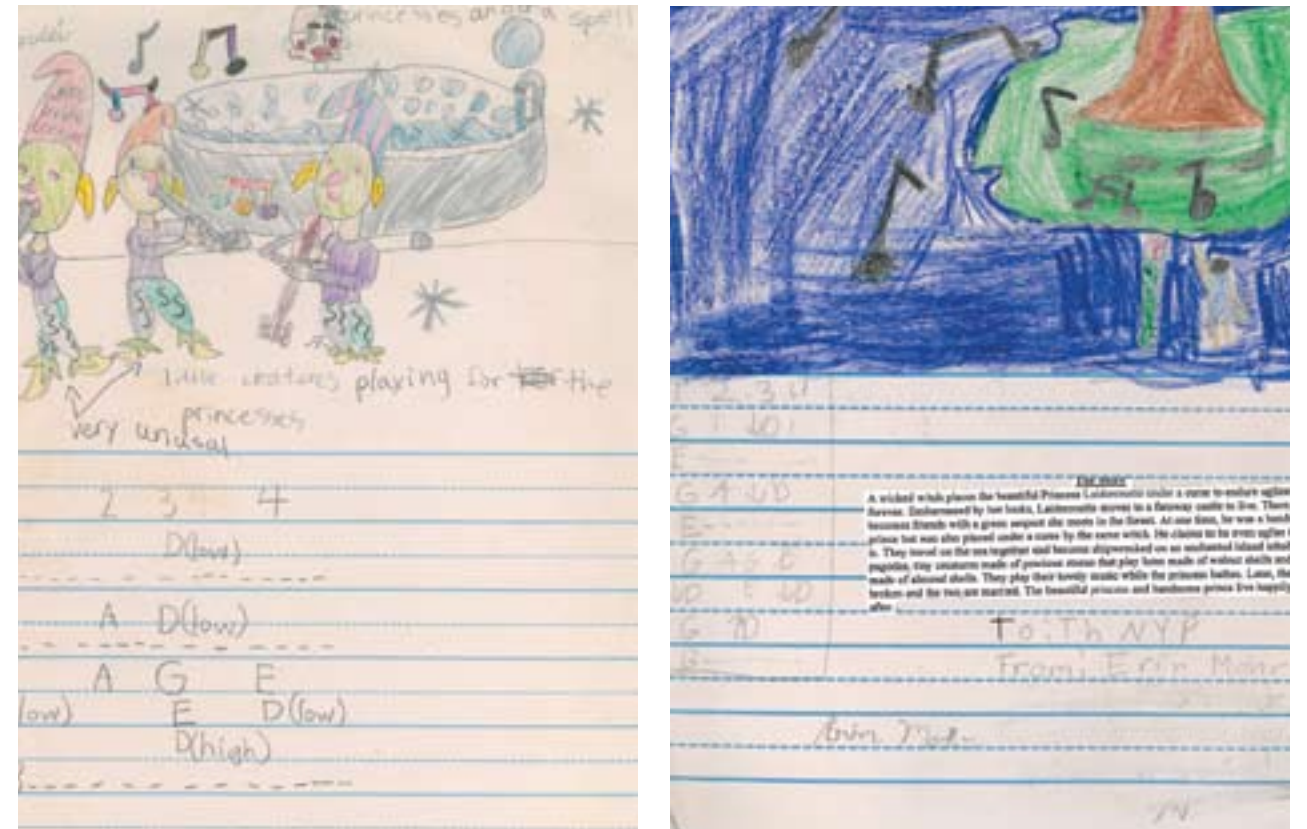 princesses a spell
little creatures playing for the
princesses
very unusal
2 3 4
D(low)
A D(low)
A G E
low) E D(low)
D(high)
1 2 3 4
G
E
G A LD
E
G A G E
LD E LD
G
A wicked witch places the beautiful Princess Laideronnette under a curse to endure
forever. Embarrassed by her looks, Laideronnette moves to a faraway castle to live. There
becomes friends with a green serpent she meets in the forest. At one time, he was a
prince but was also placed under a curse by the same witch. He claims to be even uglier
is. They travel on the sea together and become shipwrecked on an enchanted island
pagodas, tiny creatures made of precious stones that play lutes made of walnut shells and
made of almond shells. They play their lovely music while the princess bathes. Later, the
broken and the two are married. The beautiful princess and handsome prince live happily
after
To: Th NYP
From: Erin Mohr
Erin